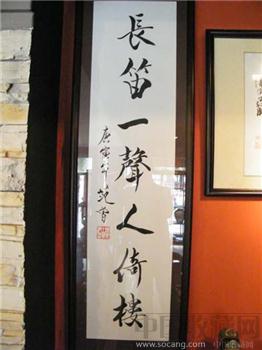 長笛一聲人倚樓
庚寅年 范曾
中国收藏网
www.socang.com